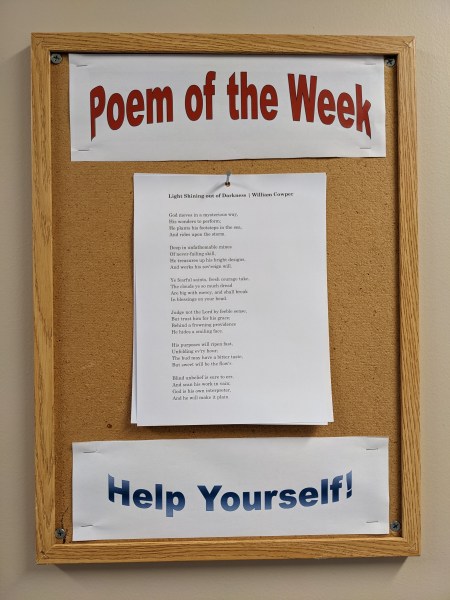 Poem of the Week
Light Shining out of Darkness | William Cowper
God moves in a mysterious way,
His wonders to perform;
He plants his footsteps in the sea,
And rides upon the storm.
Deep in unfathomable mines
Of never-failing skill,
He treasures up his bright designs,
And works his sov'reign will.
Ye fearful saints, fresh courage take,
The clouds ye so much dread
Are big with mercy, and shall break
In blessings on your head.
Judge not the Lord by feeble sense,
But trust him for his grace;
Behind a frowning providence
He hides a smiling face.
His purposes will ripen fast,
Unfolding ev'ry hour;
The bud may have a bitter taste,
But sweet will be the flow'r.
Blind unbelief is sure to err,
And scan his work in vain;
God is his own interpreter,
And he will make it plain.
Help Yourself!